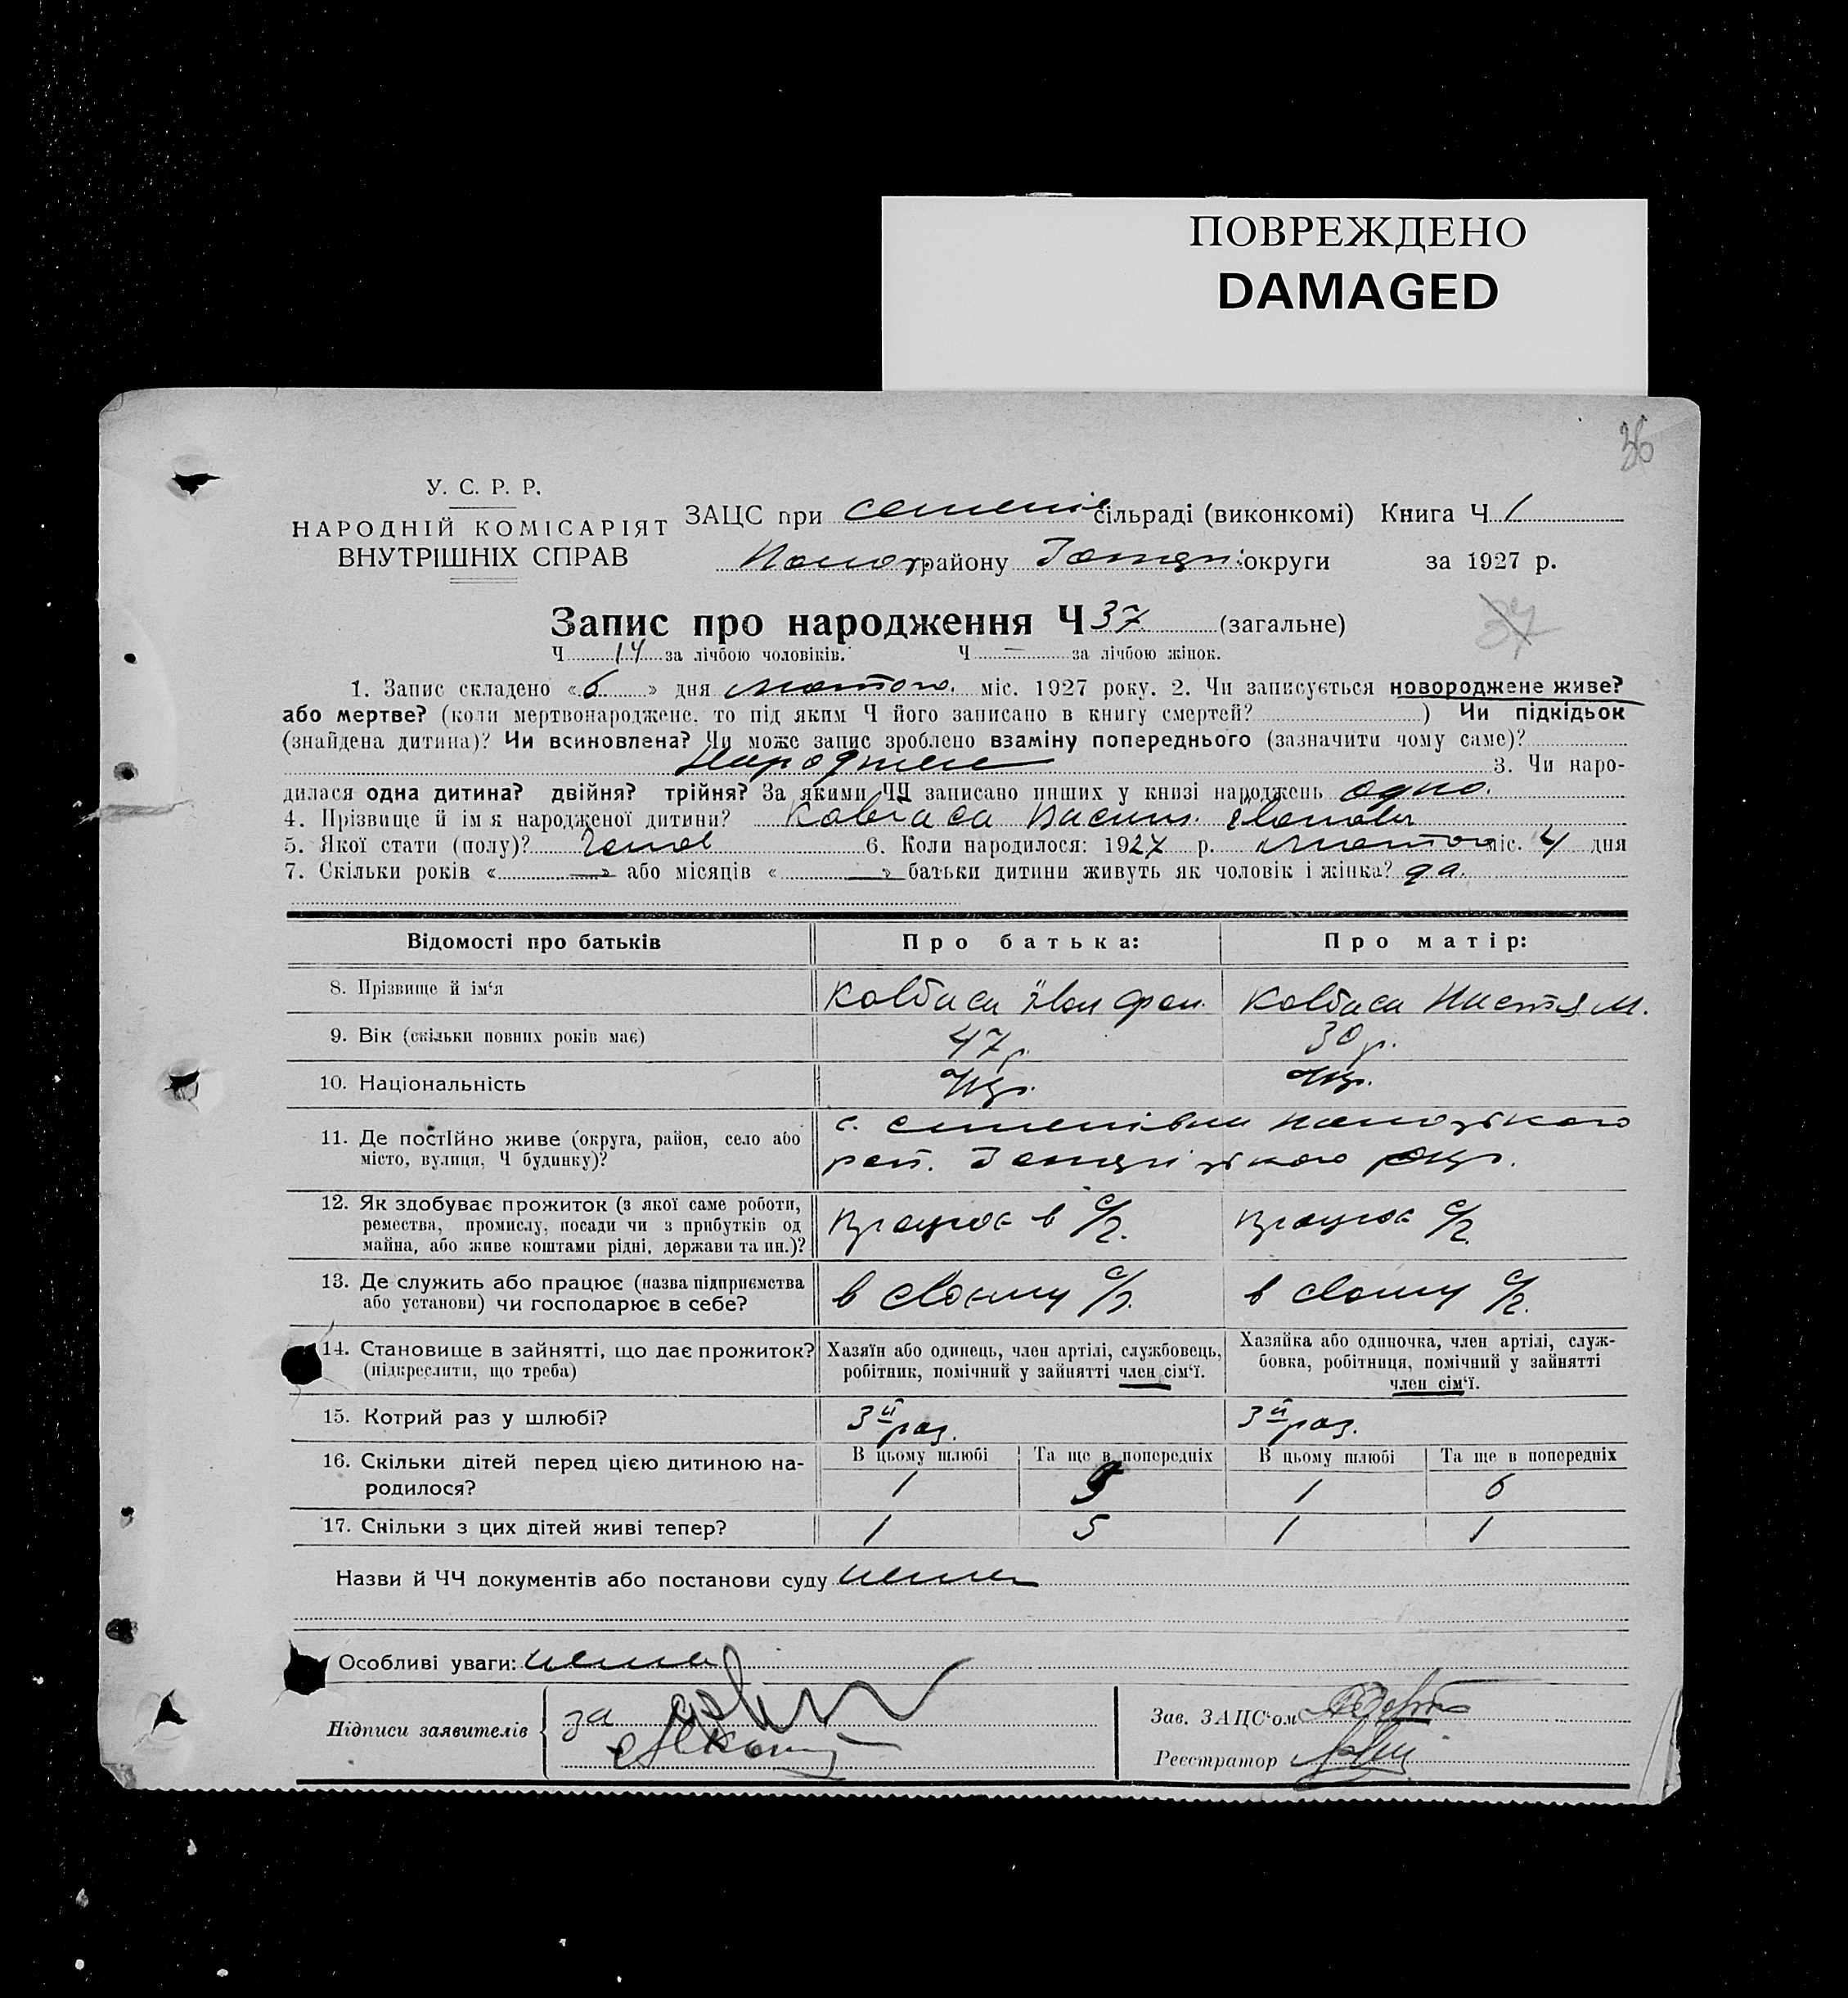 ПОВРЕЖДЕНО
DAMAGED
36
У. С. Р. Р.
НАРОДНІЙ КОМІСАРІЯТ
ВНУТРІШНІХ СПРАВ
ЗАЦС при сільраді (виконкомі) Книга Ч 1
району округи за 1927 р.
Запис про народження Ч 37 (загальне)
37
Ч 14 за лічбою чоловіків. Ч — за лічбою жінок.
1. Запис складено «6» дня лютого міс. 1927 року. 2. Чи записується новороджене живе?
або мертве? (коли мертвонароджене, то під яким Ч його записано в книгу смертей? ) Чи підкідьок
(знайдена дитина)? Чи всиновлена? Чи може запис зроблено взаміну попереднього (зазначити чому саме)?
3. Чи наро-
дилася одна дитина? двійня? трійня? За якими ЧЧ записано инших у книзі народжень одно.
4. Прізвище й ім'я народженої дитини? Ковбаса
5. Якої стати (полу)? 6. Коли народилося: 1927 р. лютого міс. 4 дня
7. Скільки років « — » або місяців « — » батьки дитини живуть як чоловік і жінка? да.
Відомості про батьків Про батька: Про матір:
8. Прізвище й ім'я Ковбаса Іван Ковбаса Настя М.
9. Вік (скільки повних років має) 47 р. 30 р.
10. Національність Укр. Укр.
11. Де постійно живе (округа, район, село або
місто, вулиця, Ч будинку)?
с. Семенівка
рай. окр.
12. Як здобуває прожиток (з якої саме роботи,
ремества, промислу, посади чи з прибутків од
майна, або живе коштами рідні, держави та ин.)?
працює в с/г. працює с/г.
13. Де служить або працює (назва підприємства
або установи) чи господарює в себе?
в своєму с/г. в своєму с/г.
14. Становище в зайнятті, що дає прожиток?
(підкреслити, що треба)
Хазяїн або одинець, член артілі, службовець,
робітник, помічний у зайнятті член сім'ї.
Хазяйка або одиночка, член артілі, служ-
бовка, робітниця, помічний у зайнятті
член сім'ї.
15. Котрий раз у шлюбі? 3й раз. 3й раз.
16. Скільки дітей перед цією дитиною на-
родилося?
В цьому шлюбі Та ще в попередніх В цьому шлюбі Та ще в попередніх
1 9 1 6
17. Скільки з цих дітей живі тепер? 1 5 1 1
Назви й ЧЧ документів або постанови суду нема
Особливі уваги: нема
Підписи заявителів за
Зав. ЗАЦС'ом
Реєстратор